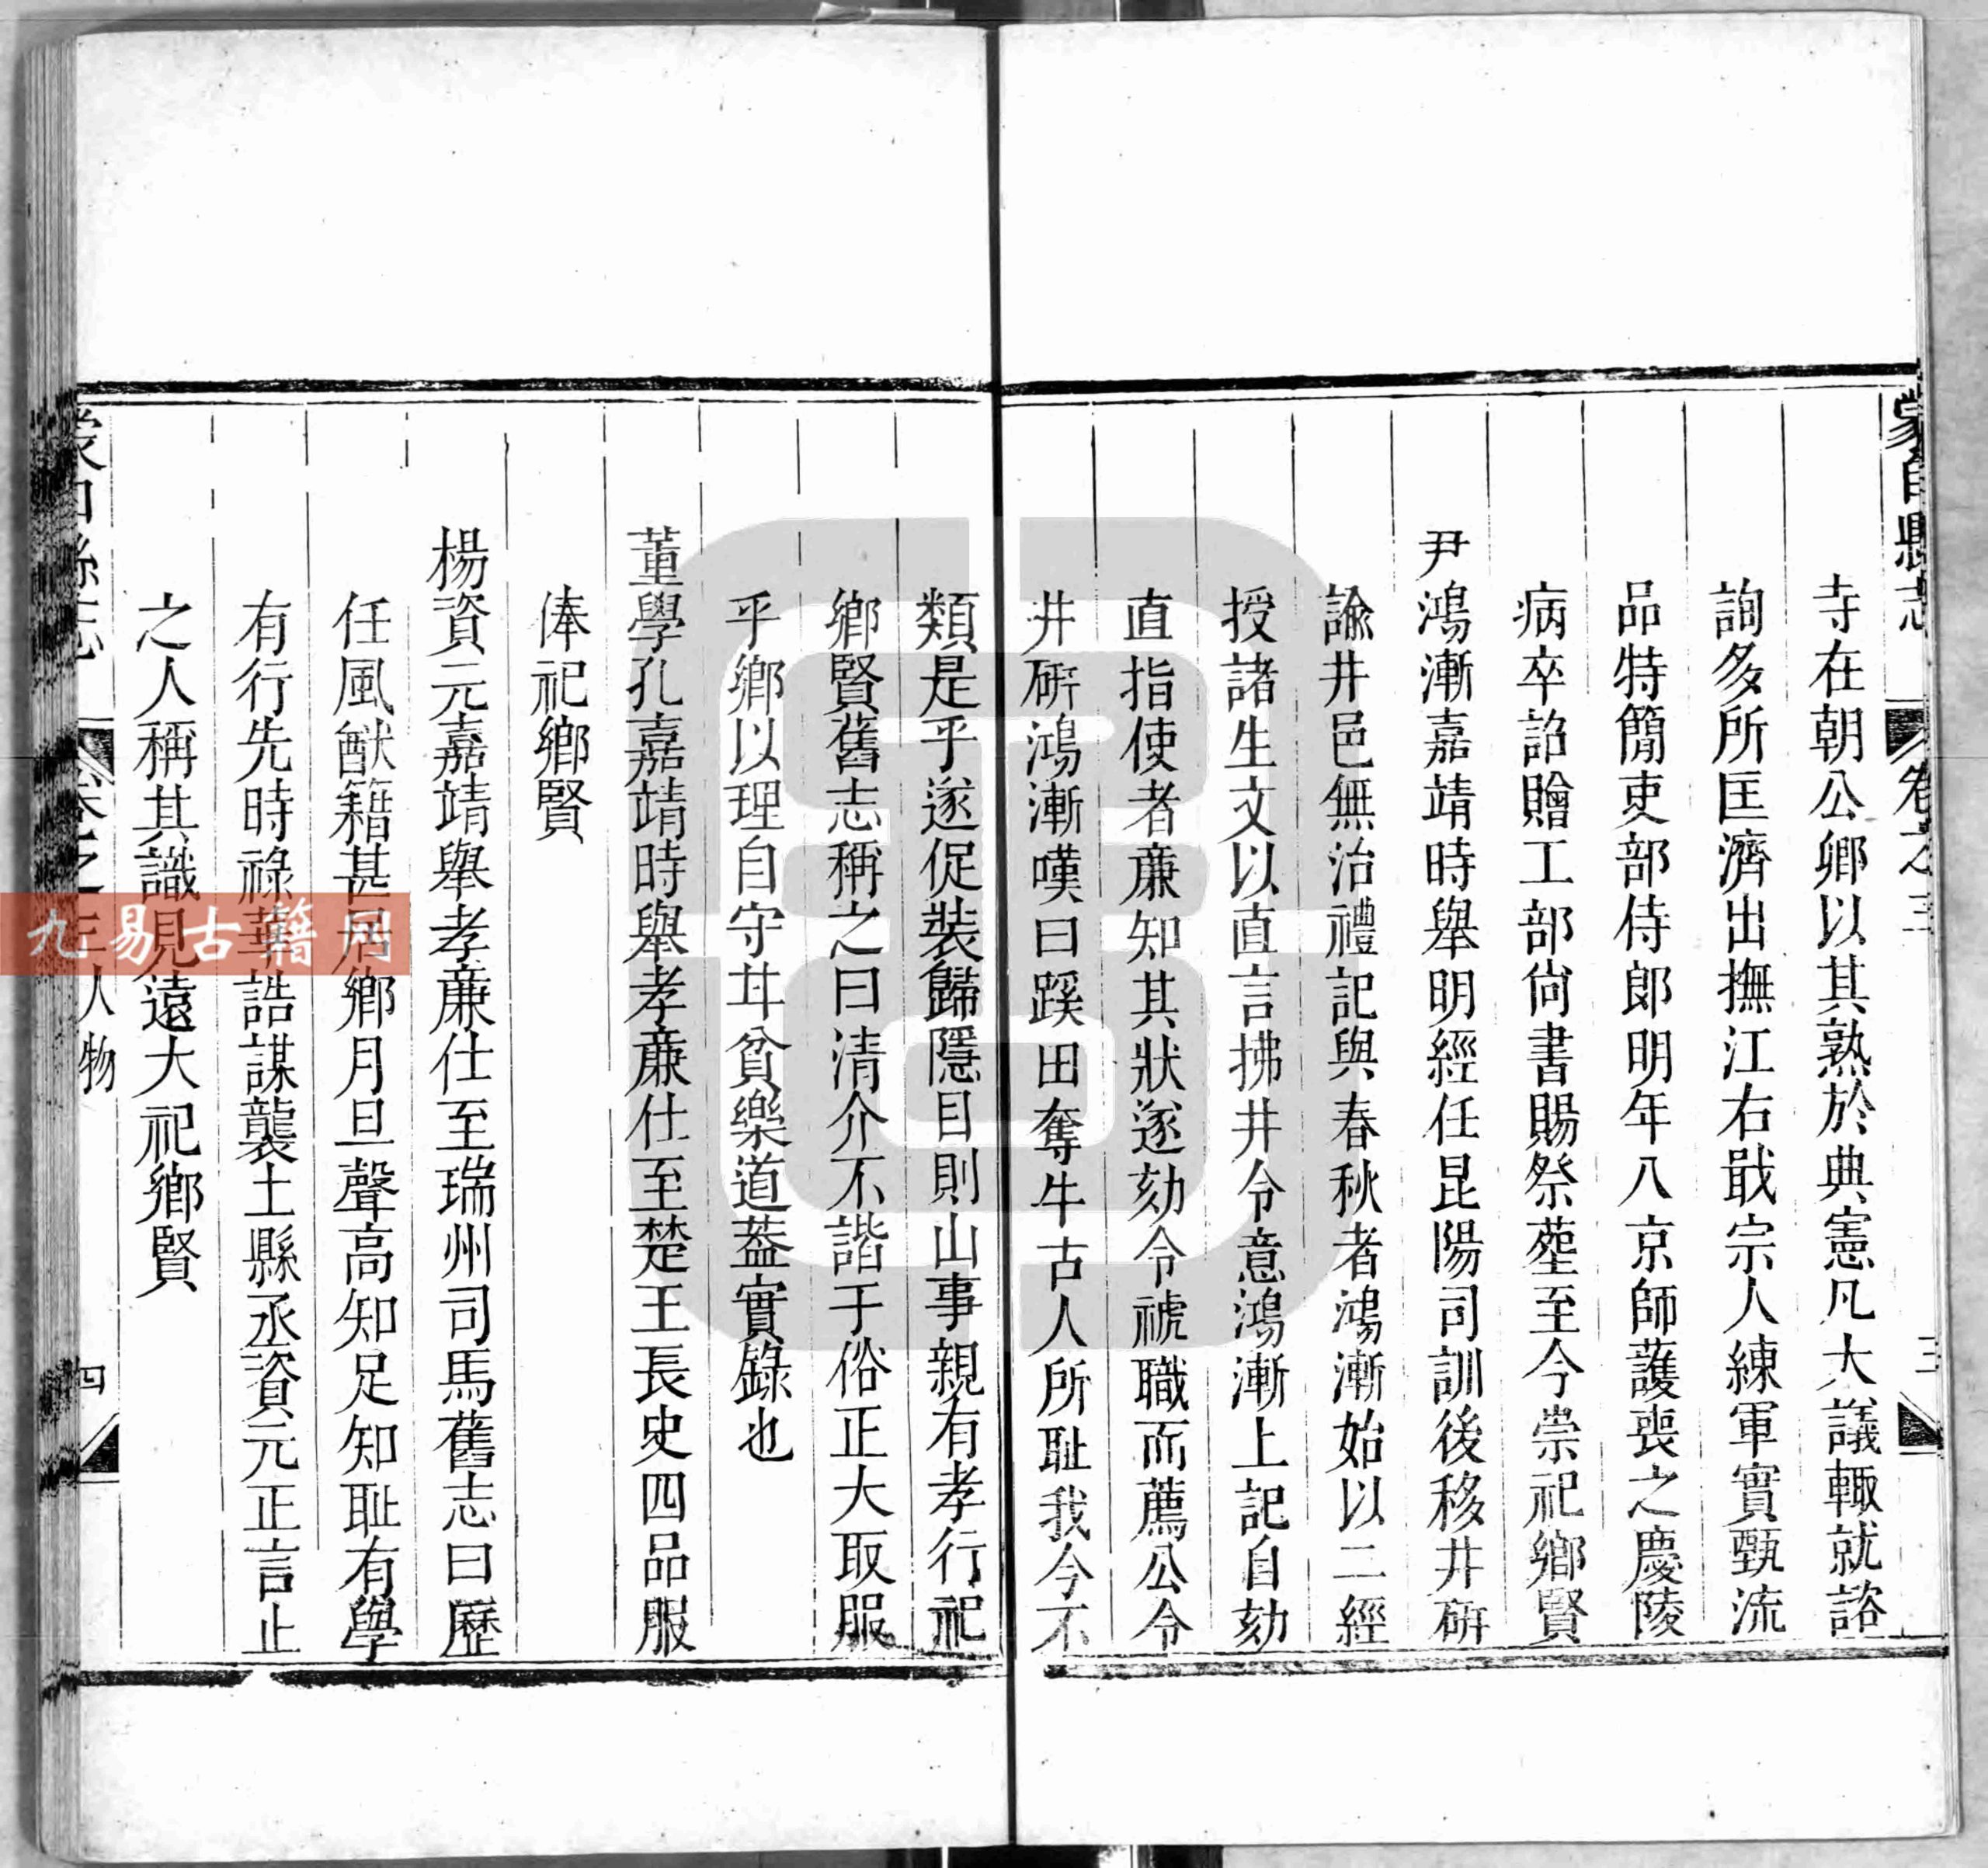 蒙自縣志 卷之三 三
寺在朝公卿以其熟於典憲凡大議輒就諮
詢多所匡濟出撫江右戢宗人練軍實甄流
品特簡吏部侍郎明年八京師護喪之慶陵
病卒詔贈工部尙書賜祭塟至今崇祀鄉賢
尹鴻漸嘉靖時舉明經任昆陽司訓後移井硏
諭井邑無治禮記與春秋者鴻漸始以二經
授諸生文以直言拂井令意鴻漸上記自劾
直指使者亷知其狀遂劾令禠職而薦公令
井硏鴻漸嘆曰蹊田奪牛古人所耻我今不
類是乎遂促裝歸隱目則山事親有孝行祀
鄉賢舊志稱之曰清介不諧于俗正大取服
乎鄉以理自守甘貧樂道葢實錄也
董學孔嘉靖時舉孝亷仕至楚王長史四品服
俸祀鄉賢
楊資元嘉靖舉孝亷仕至瑞州司馬舊志曰歷
任風猷籍甚居鄉月旦聲高知足知耻有學
有行先時祿華誥謀襲土縣丞資元正言止
之人稱其識見遠大祀鄉賢
蒙自縣志 卷之三人物 四
九易古籍网